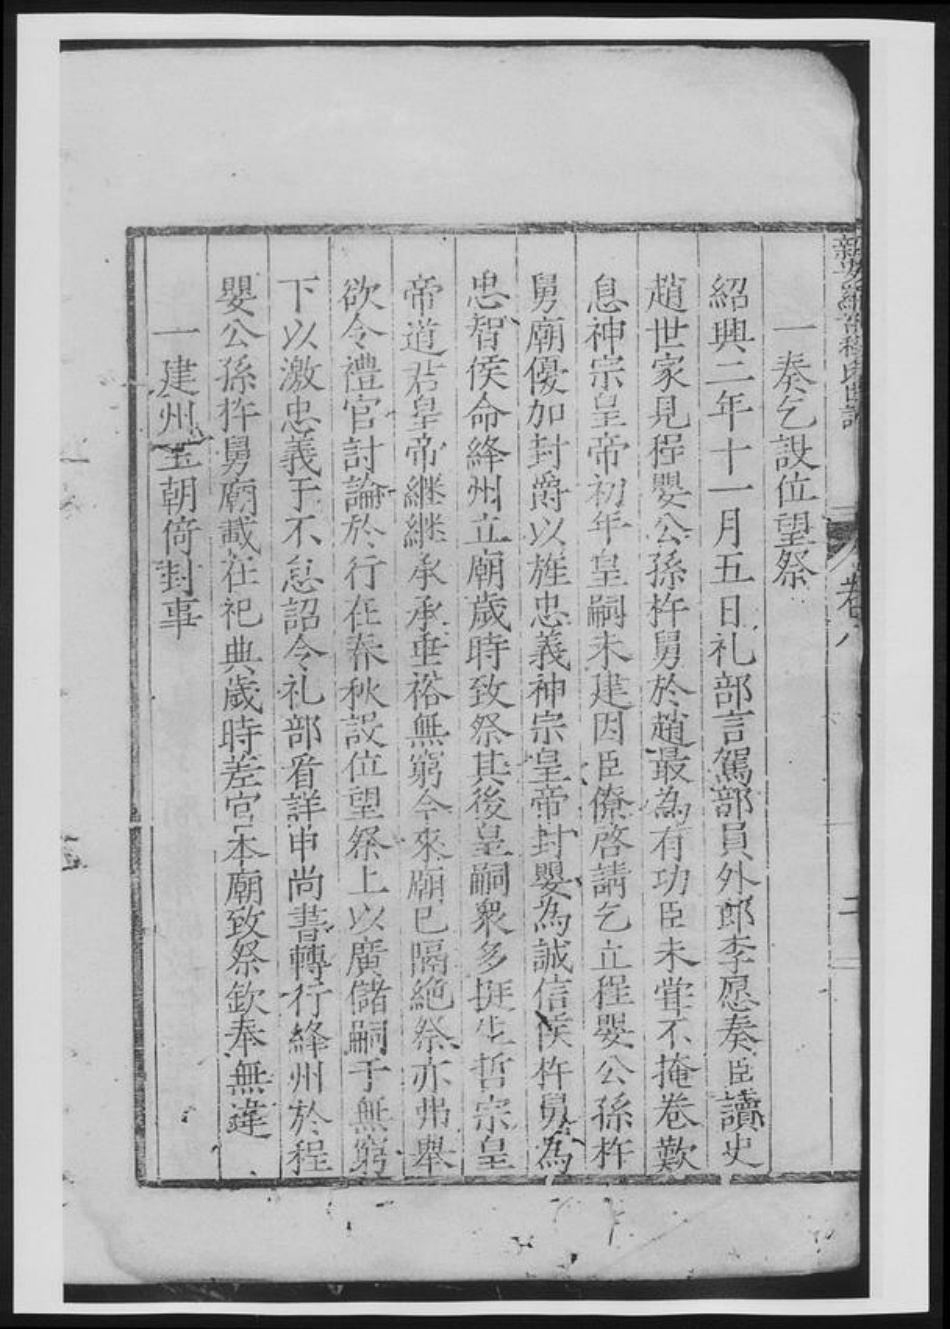 卷八
二
一奏乞設位望祭
紹興二年十一月五日礼部言駕部員外郎李愿奏臣讀史
趙世家見程嬰公孫杵舅於趙最為有功臣未甞不掩卷歎
息神宗皇帝初年皇嗣未建因臣僚啓請乞立程嬰公孫杵
舅廟優加封爵以旌忠義神宗皇帝封嬰為誠信侯杵舅為
忠智侯命絳州立廟歲時致祭其後皇嗣衆多挺生哲宗皇
帝道君皇帝継継承承垂裕無窮今來廟已隔絶祭亦弗舉
欲令禮官討論於行在春秋設位望祭上以廣儲嗣于無窮
下以激忠義于不怠詔令礼部看詳申尚書轉行絳州於程
嬰公孫杵舅廟載在祀典歲時差官本廟致祭欽奉無違
一建州朝倚封事